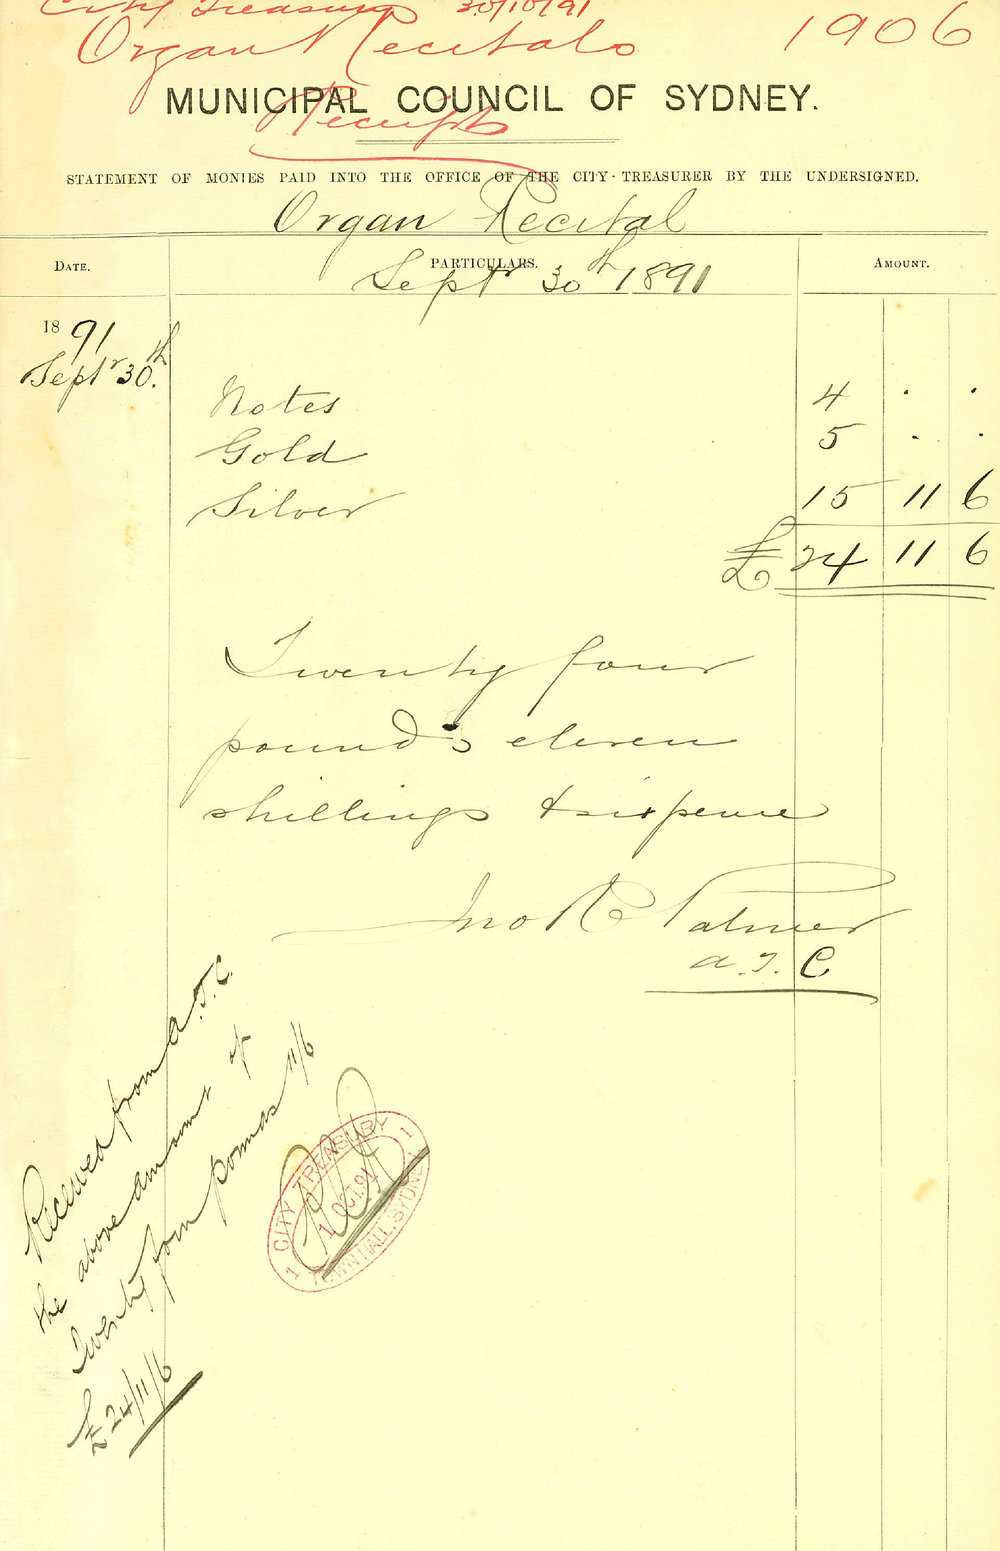 City Treasurer 30/10/91
Organ Recitals 1906
MUNICIPAL COUNCIL OF SYDNEY.
Receipts
STATEMENT OF MONIES PAID INTO THE OFFICE OF THE CITY-TREASURER BY THE UNDERSIGNED.
Organ Recital
DATE. PARTICULARS. AMOUNT.
Septr 30th 1891
1891
Septr 30th.
Notes 4 . .
Gold 5 . .
Silver 15 11 6
£ 24 11 6
Twenty four
pounds eleven
shillings & sixpence
Jno R Palmer
A.T.C
Received from A.T.C.
the above amount of
Twenty four pounds 11/6
£24/11/6
CITY TREASURY
1 OCT.91
TOWN HALL, SYDNEY
1 1